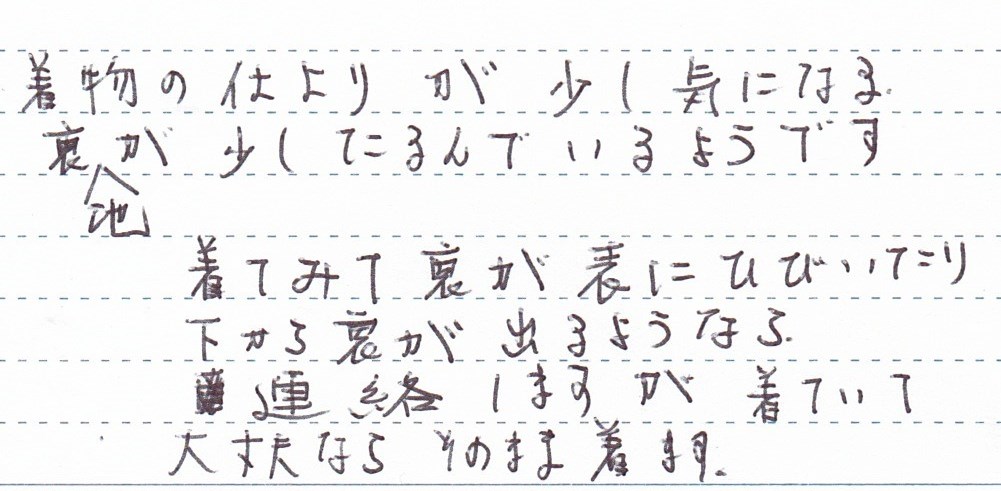 着物の仕よりが少し気になる.
裏地が少したるんでいるようです
着てみて裏が表にひびいたり
下から裏が出るようなら.
連絡しますが着ていて
大丈夫ならそのまま着ます.